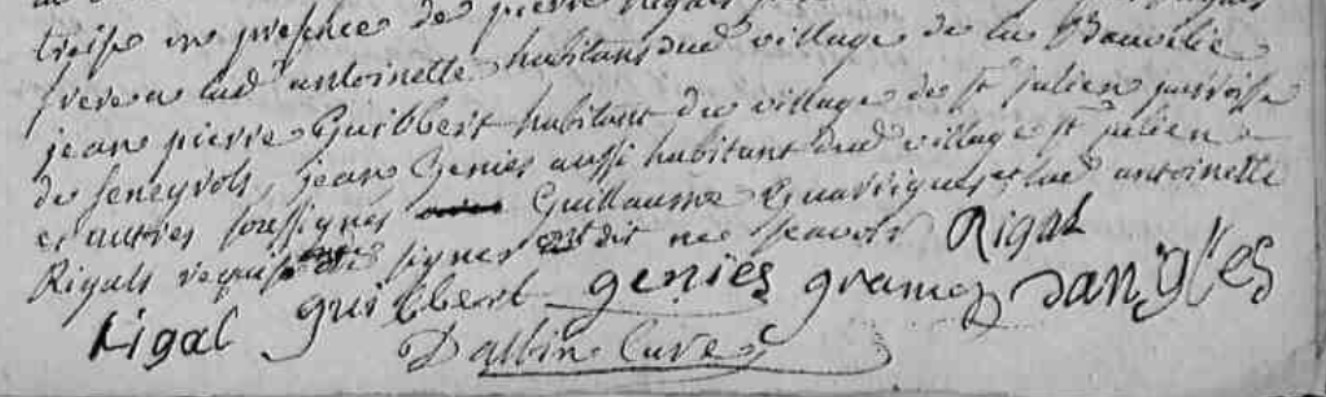 treise en presence de pierre Rigals
frere a lad antoinette habitans dud village de la
jean pierre Guilbbert habitant du village de st julien parroisse
de seneyrols, jean Genies aussi habitant dud village st julien
et autres soussignes Guillaume et lad antoinette
Rigals requise signer ont dit ne scavoir Rigal
Rigal guilbbert genies gramez dangles
Dalbin Curé